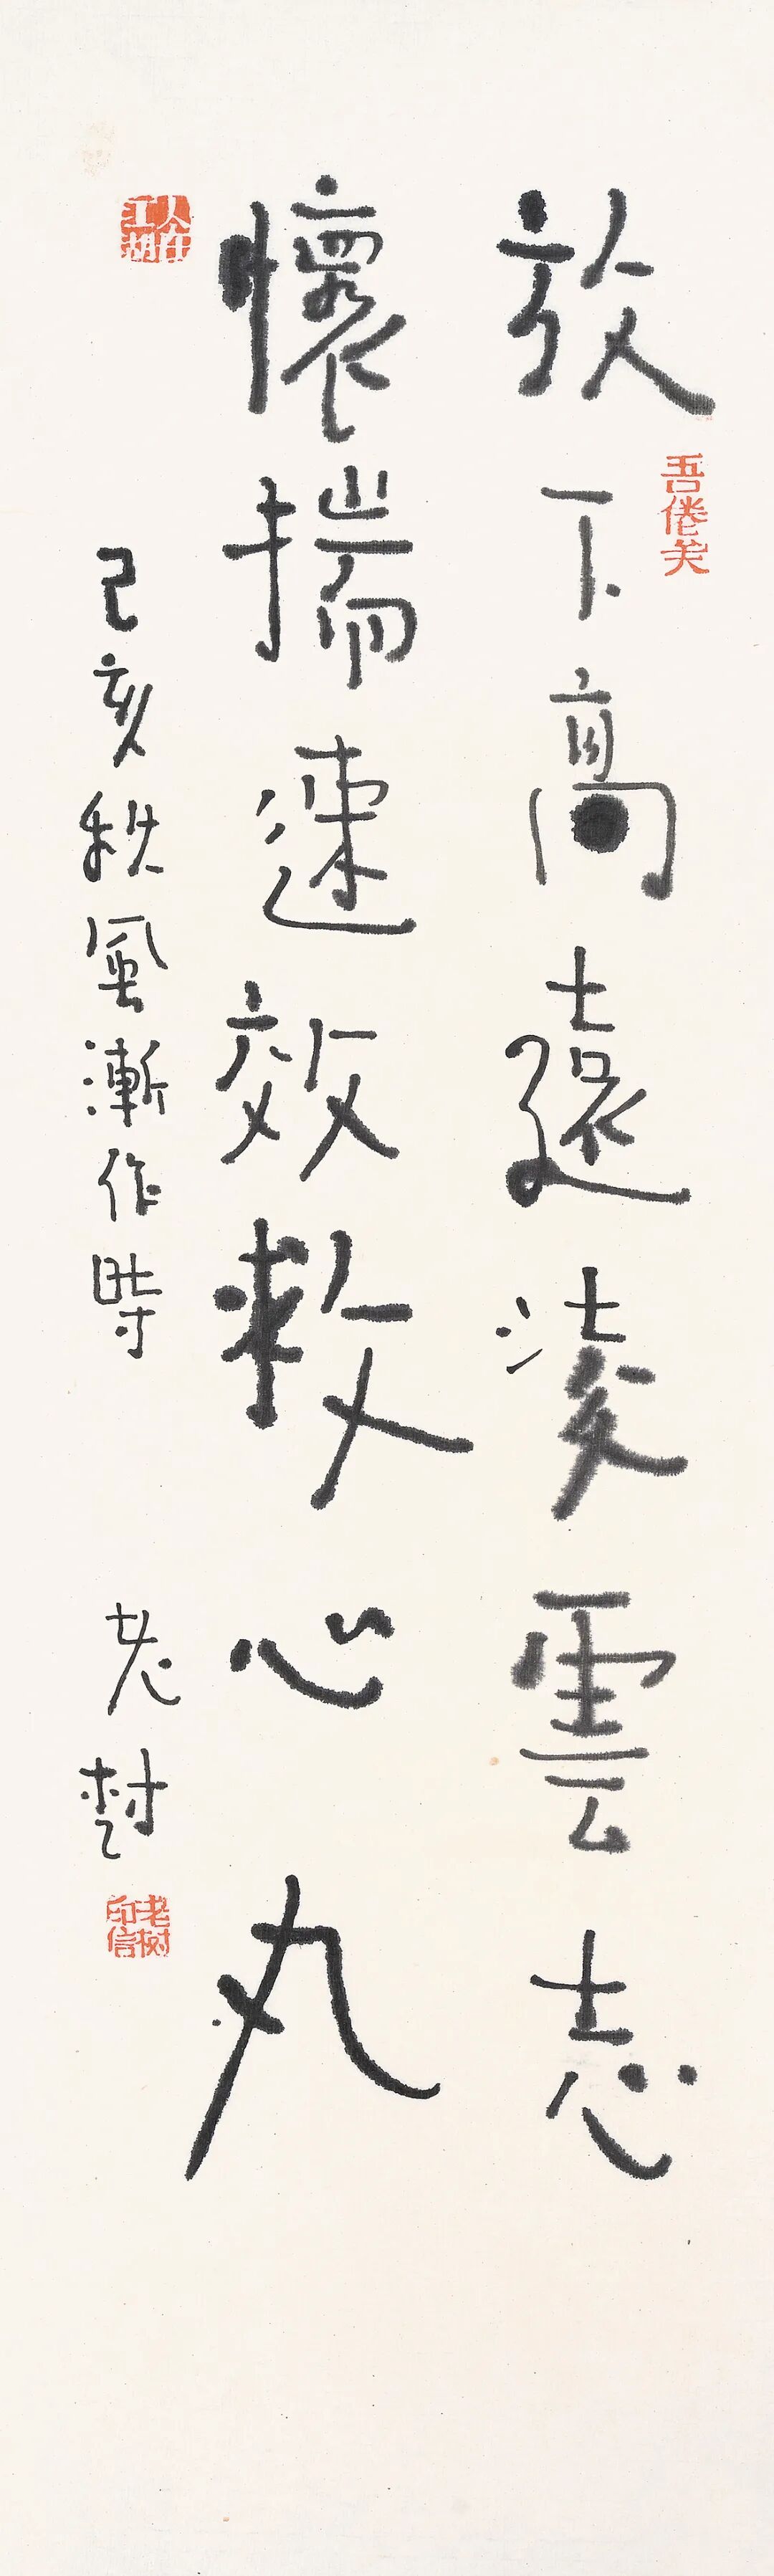 放下高遠淩雲志
吾倦矣
懷揣速效救心丸
人在江湖
己亥秋風漸作時
老樹
老樹印信